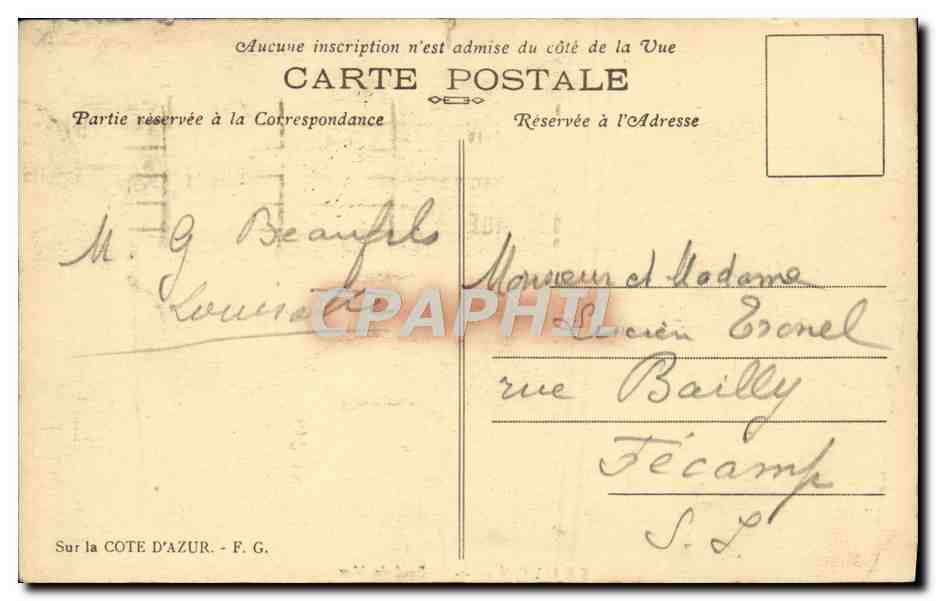 Aucune inscription n'est admise du côté de la Vue
CARTE POSTALE
Partie réservée à la Correspondance
Réservée à l'Adresse
M. G Beaufils
CPAPHIL
Monsieur et Madame
Lucien
rue Bailly
Fécamp
S. I.
Sur la COTE D'AZUR. - F. G.